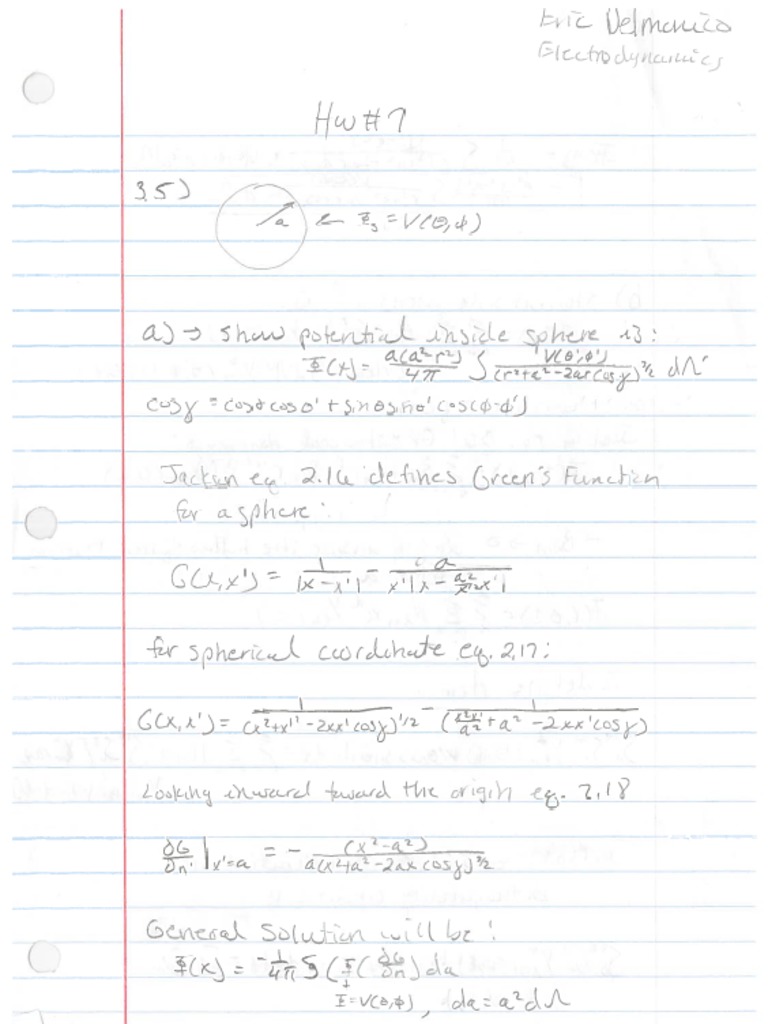 Eric Delmonico
Electrodynamics
Hw #7
3.5)
a ← Φₛ = V(θ,φ)
a) → show potential inside sphere is:
Φ(x) = a(a²-r²)/4π ∫ V(θ',φ')/(r²+a²-2ar cosγ)^3/2 dΩ'
cosγ = cosθcosθ' + sinθsinθ' cos(φ-φ')
Jackson eq 2.16 defines Green's Function
for a sphere:
G(x,x') = 1/|x-x'| - a/x'|x - a²/x'² x'|
for spherical coordinate eq. 2.17:
G(x,x') = 1/(x²+x'² - 2xx'cosγ)^1/2 - 1/(x²x'²/a² + a² - 2xx'cosγ)
Looking inward toward the origin eq. 2.18
∂G/∂n' |x'=a = - (x²-a²)/a(x²+a²-2ax cosγ)^3/2
General Solution will be:
Φ(x) = -1/4π ∫ (Φ(∂G/∂n) da
Φ=V(θ,φ), da = a²dΩ